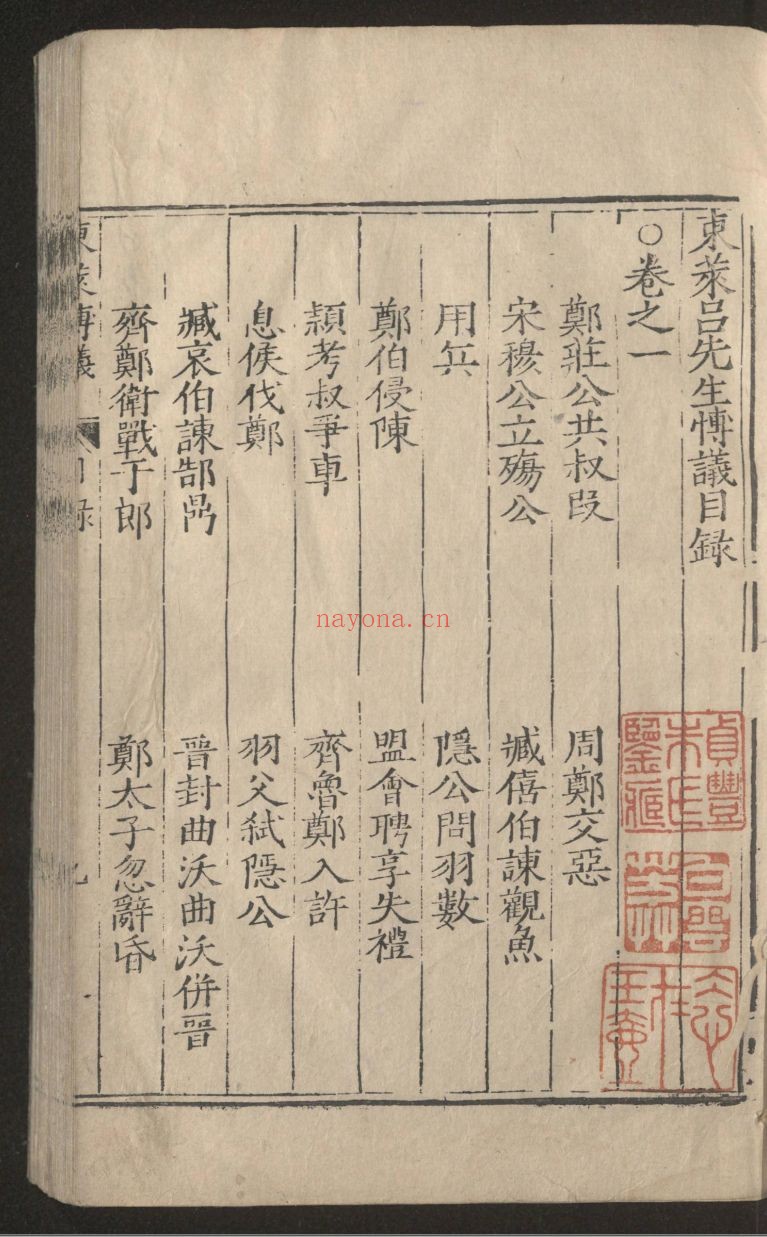 東萊呂先生愽議目録
○卷之一
鄭莊公共叔段
周鄭交惡
宋穆公立殤公
臧僖伯諫觀魚
用兵
隱公問羽數
鄭伯侵陳
盟會聘享失禮
潁考叔爭車
齊魯鄭入許
息侯伐鄭
羽父弑隱公
臧哀伯諫郜鼎
晉封曲沃曲沃併晉
齊鄭衛戰于郎
鄭太子忽辭昏
東萊愽議
目録
nayona.cn